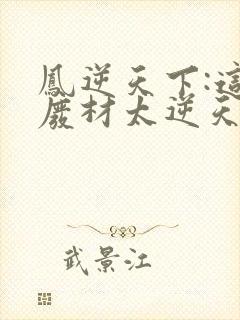 鳳逆天下:這
廢材太逆天
武景江